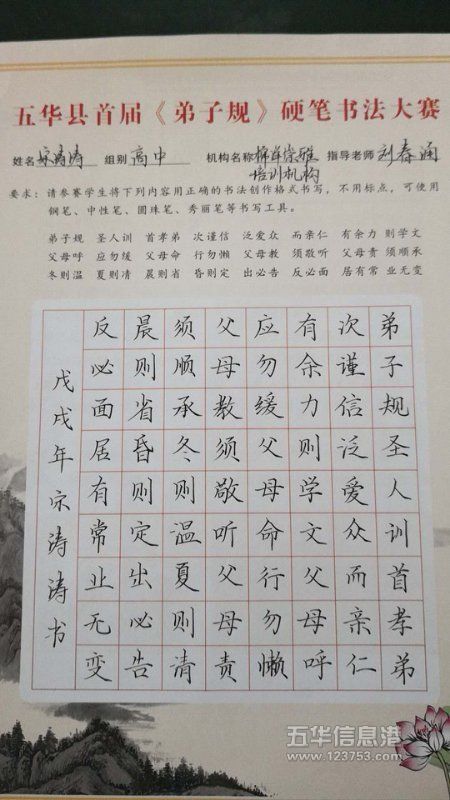 五华县首届《弟子规》硬笔书法大赛
姓名 宋涛涛 组别 高中 机构名称 棉洋崇雅 指导老师 刘春涵
培训机构
要求：请参赛学生将下列内容用正确的书法创作格式书写，不用标点，可使用
钢笔、中性笔、圆珠笔、秀丽笔等书写工具。
弟子规 圣人训 首孝弟 次谨信 泛爱众 而亲仁 有余力 则学文
父母呼 应勿缓 父母命 行勿懒 父母教 须敬听 父母责 须顺承
冬则温 夏则清 晨则省 昏则定 出必告 反必面 居有常 业无变
弟子规圣人训首孝弟
次谨信泛爱众而亲仁
有余力则学文父母呼
应勿缓父母命行勿懒
父母教须敬听父母责
须顺承冬则温夏则清
晨则省昏则定出必告
反必面居有常业无变
戊戌年宋涛涛书
五华信息港
www.123753.com